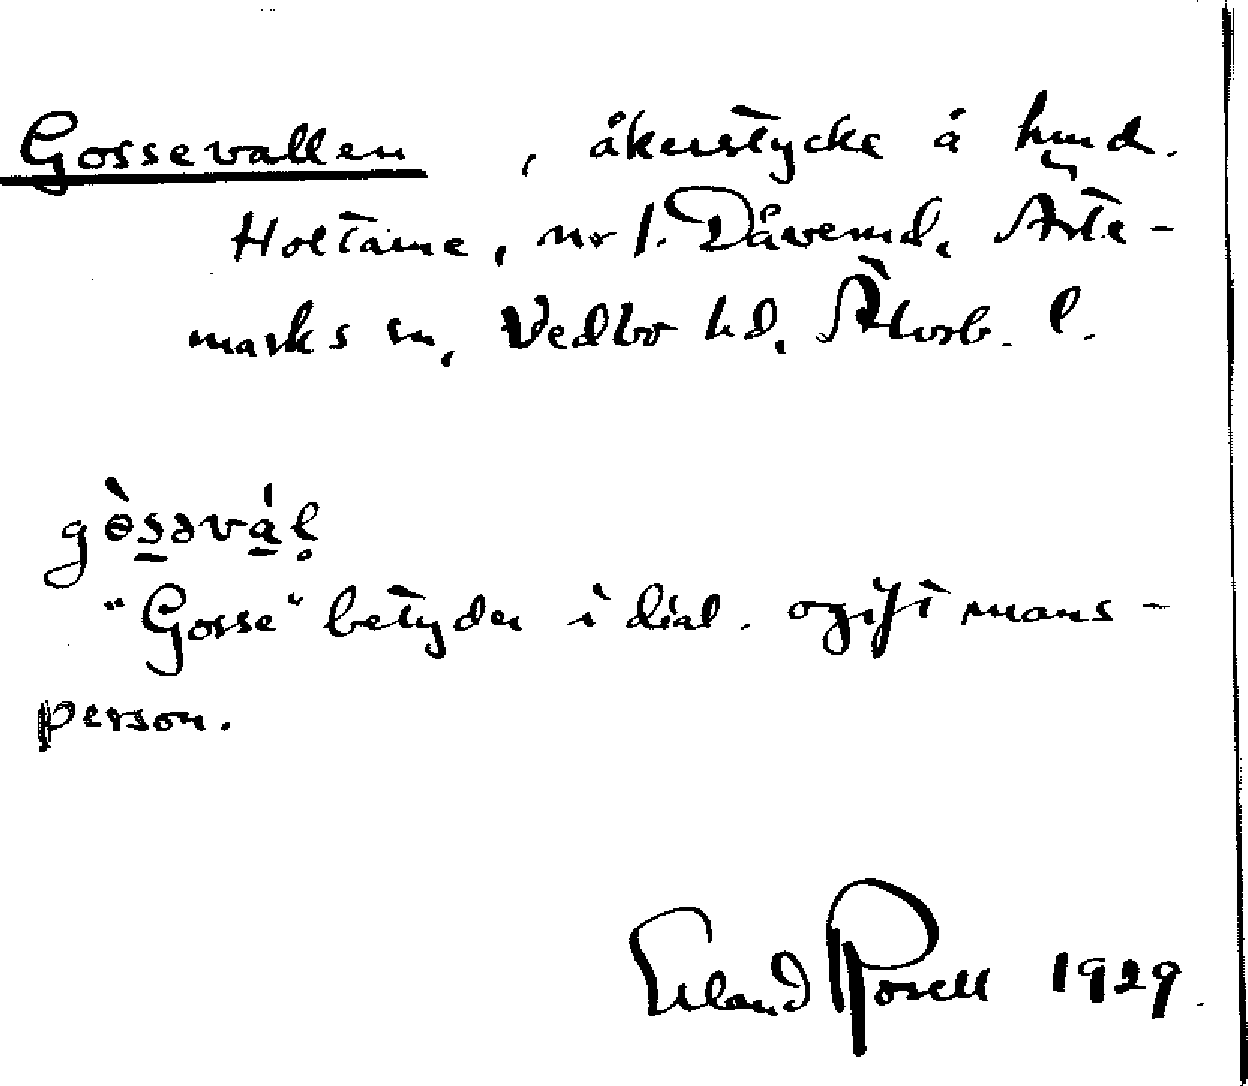 Gossevallen, åkerstycke å hmd.
Holtane, nr 1. Dåverud, Årte-
marks sn, Vedbo hd, Älvsb. l.
gòsəvál̥
"Gosse" betyder i dial. ogift mans-
person.
Erland Rosell 1929.